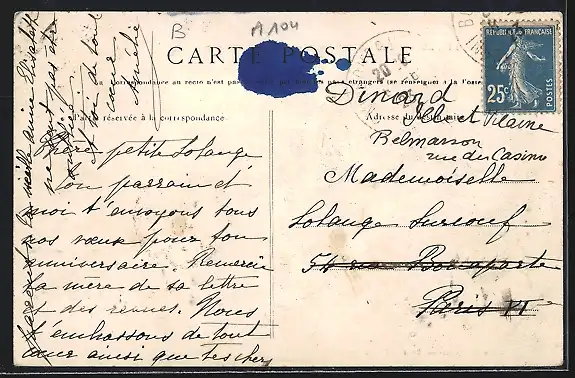 B
A 104
CARTE POSTALE
La Correspondance au recto n'est pas
(se renseigner à la Poste
Partie réservée à la correspondance
Adresse du destinataire
RÉPUBLIQUE FRANÇAISE
25c
POSTES
20
Dinard
Ille et Vilaine
Belmarson
rue du Casino
Mademoiselle
Solange Surcouf
54 rue Bonaparte
Paris VI
Chère petite Solange
ton parrain et
moi t'envoyons tous
nos vœux pour ton
anniversaire. Remercie
ta mère de sa lettre
et des revues. Nous
t'embrassons de tout
cœur ainsi que tes chers
vieille amie Elisabeth
ne peut pas
de tout
cœur